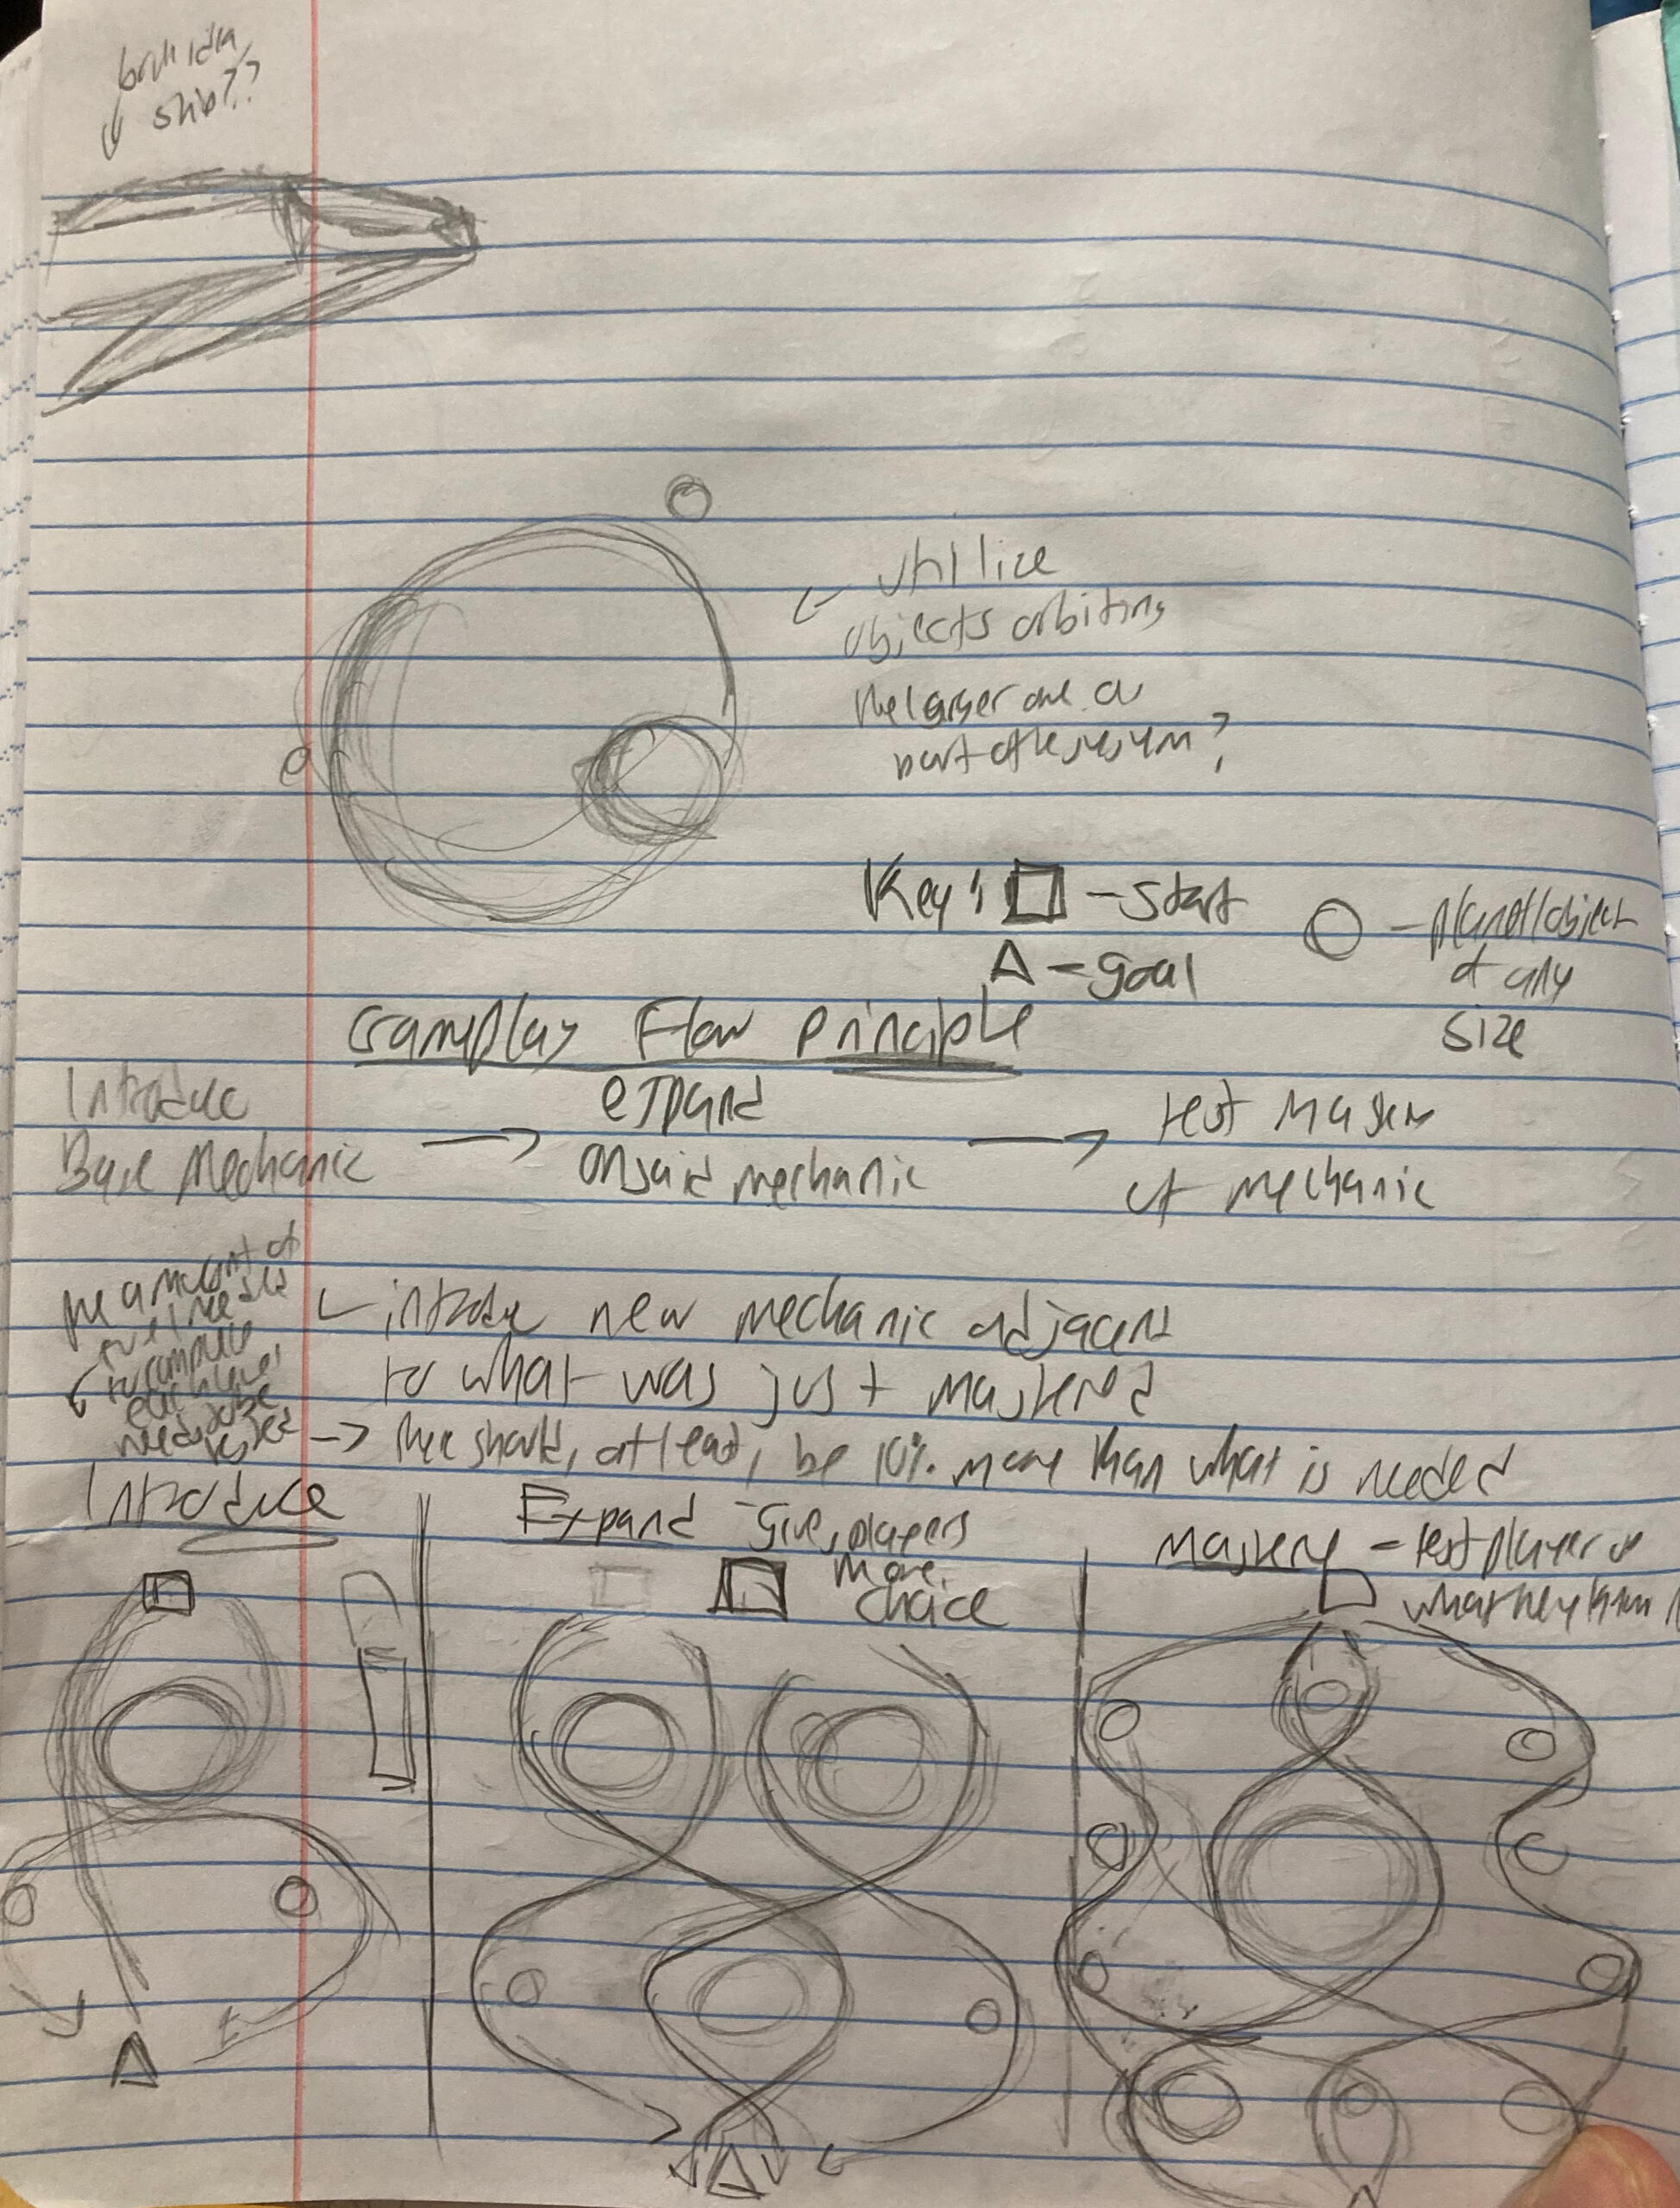 ship??
Utilice
objects orbiting
the larger one a
part of the system?
Key: - Start
- goal
- planet/object
of any
size
Gameplay Flow Principle
Introduce
Base Mechanic
expand
on said mechanic
test mastery
of mechanic
introduce new mechanic adjacent
to what was just mastered
the amount of
fuel needed
to complete
each level
needs to be
tested
there should, at least, be 10% more than what is needed
Introduce
Expand - Give players
more
choice
Mastery - test players
what they know